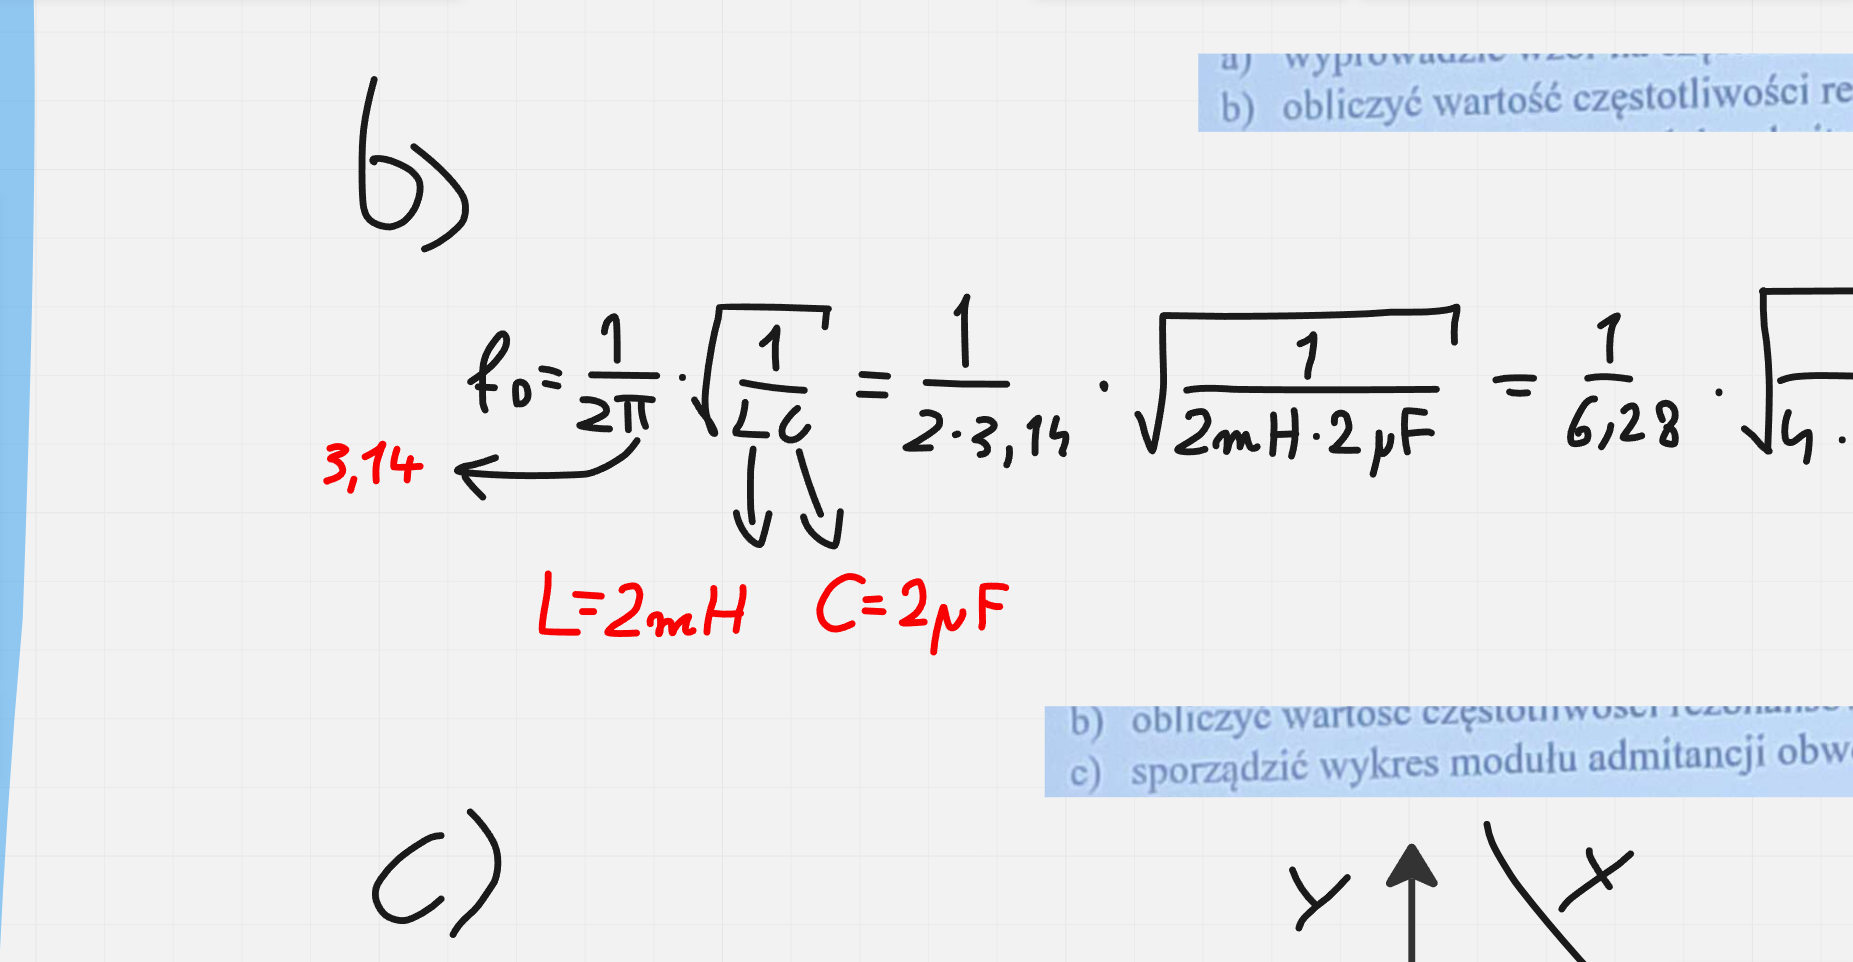 b) obliczyć wartość częstotliwości re
b)
f₀ = 1/2π · √(1/LC) = 1/(2·3,14) · √(1/(2mH·2μF)) = 1/6,28 · √(4·
3,14
L=2mH C=2μF
b) obliczyć wartość częstotliwości
c) sporządzić wykres modułu admitancji obw
c)
Y X